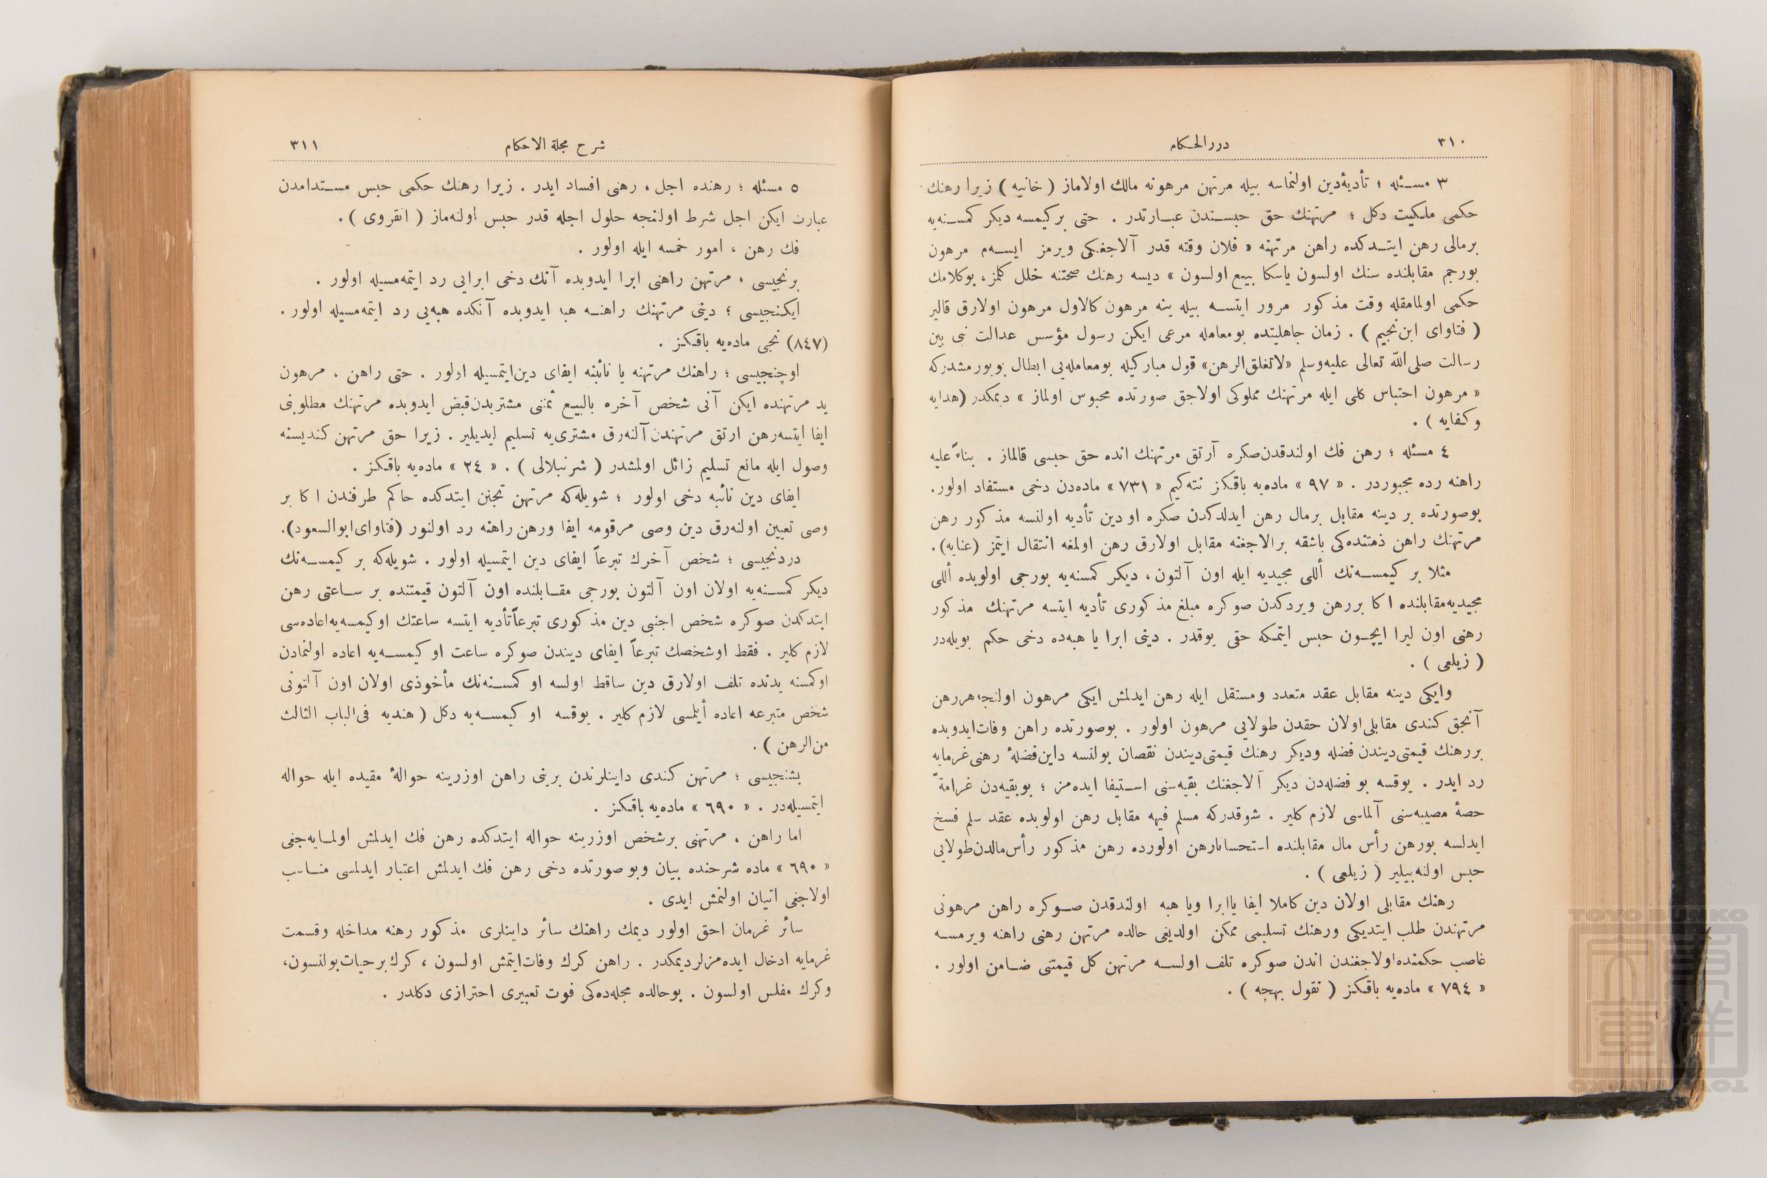 ٣١٠
دررالحكام
٣ مسئله ؛ تأدیۀدین اولنماسه بیله مرتهن مرهونه مالك اولاماز ( خانیه ) زیرا رهنك
حكمی ملكیت دكل ؛ مرتهنك حق حبسندن عبارتدر . حتی بركیمسه دیكر كمسنه‌یه
برمالی رهن ایتدكده راهن مرتهنه « فلان وقته قدر آلاجغكی ویرمز ایسه‌م مرهون
بورجم مقابلنده سنك اولسون یاسكا بیع اولسون » دیسه رهنك صحتنه خلل كلمز، بوكلامك
حكمی اولمامقله وقت مذكور مرور ایتسه بیله ینه مرهون كالاول مرهون اولارق قالیر
( فتاوای ابن‌نجیم ) . زمان جاهلیتده بومعامله مرعی ایكن رسول مؤسس عدالت نبی بین
رسالت صلی‌الله تعالی علیه‌وسلم «لاتغلق‌الرهن» قول مباركیله بومعامله‌یی ابطال بویورمشدركه
« مرهون احتباس كلی ایله مرتهنك مملوكی اولاجق صورتده محبوس اولماز » دیمكدر (هدایه
وكفایه ) .
٤ مسئله ؛ رهن فك اولندقدن‌صكره آرتق مرتهنك انده حق حبسی قالماز . بناءً علیه
راهنه رده مجبوردر . « ٩٧ » ماده‌یه باقكز نته‌كیم « ٧٣١ » ماده‌دن دخی مستفاد اولور.
بوصورتده بر دینه مقابل برمال رهن ایدلدكدن صكره او دین تأدیه اولنسه مذكور رهن
مرتهنك راهن ذمتنده‌كی باشقه برالاجغنه مقابل اولارق رهن اولمغه انتقال ایتمز (عنایه).
مثلا بر كیمسه‌نك أللی مجیدیه ایله اون آلتون، دیكر كمسنه‌یه بورجی اولوبده أللی
مجیدیه‌مقابلنده اكا بررهن ویردكدن صوكره مبلغ مذكوری تأدیه ایتسه مرتهنك مذكور
رهنی اون لیرا ایچون حبس ایتمكه حقی یوقدر . دینی ابرا یا هبه‌ده دخی حكم بویله‌در
( زیلعی ) .
وایكی دینه مقابل عقد متعدد ومستقل ایله رهن ایدلمش ایكی مرهون اولنجه هررهن
آنجق كندی مقابلی‌اولان حقدن طولایی مرهون اولور . بوصورتده راهن وفات‌ایدوبده
بررهنك قیمتی‌دیندن فضله ودیكر رهنك قیمتی‌دیندن نقصان بولنسه داین‌فضلۀ رهنی‌غرمایه
رد ایدر . یوقسه بو فضله‌دن دیكر آلاجغنك بقیه‌سنی استیفا ایده‌مز ؛ بوبقیه‌دن غرامةً
حصۀ مصیبه‌سنی آلماسی لازم كلیر . شوقدركه مسلم فیهه مقابل رهن اولوبده عقد سلم فسخ
ایدلسه بورهن رأس مال مقابلنده استحسانارهن اولورده رهن مذكور رأس‌مالدن‌طولایی
حبس اولنه‌بیلیر ( زیلعی ) .
رهنك مقابلی اولان دین كاملا ایفا یاابرا ویا هبه اولندقدن صوكره راهن مرهونی
مرتهندن طلب ایتدیكی ورهنك تسلیمی ممكن اولدیغی حالده مرتهن رهنی راهنه ویرمسه
غاصب حكمنده‌اولاجغندن اندن صوكره تلف اولسه مرتهن كل قیمتنی ضامن اولور .
« ٧٩٤ » ماده‌یه باقكز ( نقول بهجه ) .
شرح مجلة الاحكام
٣١١
٥ مسئله ؛ رهنده اجل، رهنی افساد ایدر . زیرا رهنك حكمی حبس مستدامدن
عبارت ایكن اجل شرط اولنمجه حلول اجله قدر حبس اولنه‌ماز ( انقروی ) .
فك رهن ، امور خمسه ایله اولور .
برنجیسی ، مرتهن راهنی ابرا ایدوبده آنك دخی ابرایی رد ایتمه‌مسیله اولور .
ایكنجیسی ؛ دینی مرتهنك راهنه هبه ایدوبده آنكده هبه‌یی رد ایتمه‌مسیله اولور .
(٨٤٧) نجی ماده‌یه باقكز .
اوچنجیسی ؛ راهنك مرتهنه یا نائبنه ایفای دین‌ایتمسیله اولور . حتی راهن . مرهون
ید مرتهنده ایكن آنی شخص آخره بالبیع ثمنی مشتریدن‌قبض ایدوبده مرتهنك مطلوبنی
ایفا ایتسه‌رهن ارتق مرتهندن‌آلنه‌رق مشتری‌یه تسلیم ایدیلیر . زیرا حق مرتهن كندیسنه
وصول ایله مانع تسلیم زائل اولمشدر ( شرنبلالی ) . « ٢٤ » ماده‌یه باقكز .
ایفای دین نائبه دخی اولور ؛ شویله‌كه مرتهن تجنن ایتدكده حاكم طرفندن اكا بر
وصی تعیین اولنه‌رق دین وصی مرقومه ایفا ورهن راهنه رد اولنور (فتاوای‌ابوالسعود).
دردنجیسی ؛ شخص آخرك تبرعاً ایفای دین ایتمسیله اولور . شویله‌كه بر كیمسه‌نك
دیكر كمسنه‌یه اولان اون آلتون بورجی مقابلنده اون آلتون قیمتنده بر ساعتی رهن
ایتدكدن صوكره شخص اجنبی دین مذكوری تبرعاًتأدیه ایتسه ساعتك اوكیمسه‌یه‌اعاده‌سی
لازم كلیر . فقط اوشخصك تبرعاً ایفای دیندن صوكره ساعت او كیمسه‌یه اعاده اولنمادن
اوكمسنه یدنده تلف اولارق دین ساقط اولسه او كمسنه‌نك مأخوذی اولان اون آلتونی
شخص متبرعه اعاده أیلمسی لازم كلیر . یوقسه او كیمسه‌یه دكل ( هندیه فی‌الباب الثالث
من‌الرهن ) .
بشنجیسی ؛ مرتهن كندی داینلرندن برینی راهن اوزرینه حوالۀ مقیده ایله حواله
ایتمسیله‌در . « ٦٩٠ » ماده‌یه باقكز .
اما راهن ، مرتهنی برشخص اوزرینه حواله ایتدكده رهن فك ایدلمش اولمایه‌جغی
« ٦٩٠ » ماده شرحنده بیان وبو صورتده دخی رهن فك ایدلمش اعتبار ایدلمسی مناسب
اولاجغی اتیان اولنمش ایدی .
سائر غرمان احق اولور دیمك راهنك سائر داینلری مذكور رهنه مداخله وقسمت
غرمایه ادخال ایده‌مزلردیمكدر . راهن كرك وفات‌ایتمش اولسون ، كرك‌برحیات‌بولنسون،
وكرك مفلس اولسون . بوحالده مجله‌ده‌كی فوت تعبیری احترازی دكلدر .
TOYO BUNKO